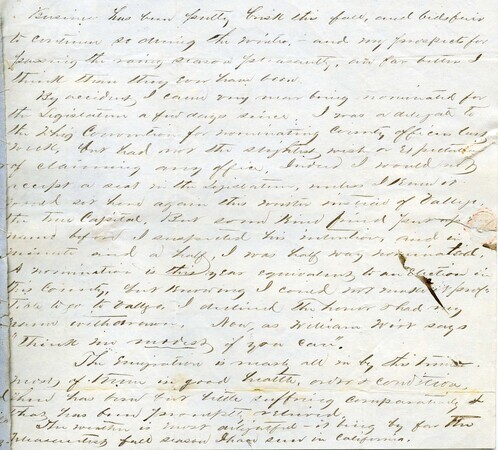 Business has been pretty brisk this fall, and bids fair
to continue so during the winter, and my prospects for
passing the rainy season pleasantly, are far better I
think than they ever have been.
By accident, I came very near being nominated for
the Legislature a few days since. I was a delegate to
the Whig Convention for nominating County officers last
week, but had not the slightest wish or expectation
of claiming any office. Indeed I would not
accept a seat in the Legislature, unless I knew it
would sit here again this winter instead of Vallejo,
the true Capital. But some kind friend put up my
name before I suspected his intention, and in
minute and a half, I was half way nominated.
A nomination is this year equivalent to an election in
this County, but knowing I could not make it
to go to Vallejo I declined the honor & had my
name withdrawn. Now, as William Wirt says
"think me modest if you can".
The Emigration is nearly all in by this time.
most of them in good health, and condition,
There has been but little suffering comparatively &
that has been promptly relieved.
The weather is most delightful - it being by far the
pleasantest fall season I have seen in California.